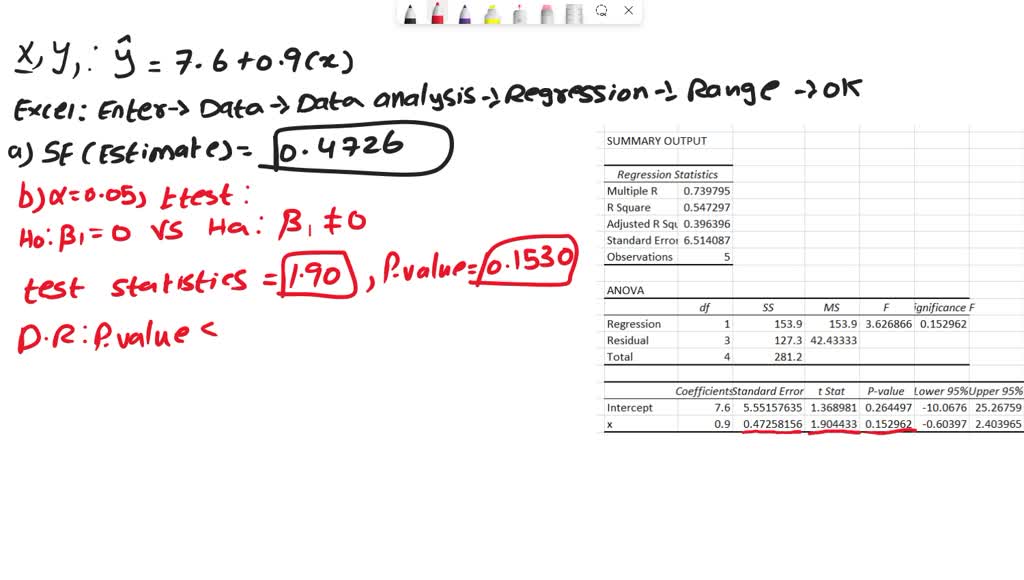 x, y, : ŷ = 7.6 + 0.9(x)
Excel: Enter → Data → Data analysis → Regression → Range → OK
a) SE (Estimate) = 0.4726
b) α = 0.05, t test :
H0: β1 = 0 vs Ha: β1 ≠ 0
test statistics = 1.90 , P.value = 0.1530
D.R : P.value <
SUMMARY OUTPUT
Regression Statistics
Multiple R 0.739795
R Square 0.547297
Adjusted R Squ 0.396396
Standard Error 6.514087
Observations 5
ANOVA
df SS MS F ignificance F
Regression 1 153.9 153.9 3.626866 0.152962
Residual 3 127.3 42.43333
Total 4 281.2
Coefficients Standard Error t Stat P-value Lower 95% Upper 95%
Intercept 7.6 5.55157635 1.368981 0.264497 -10.0676 25.26759
x 0.9 0.47258156 1.904433 0.152962 -0.60397 2.403965